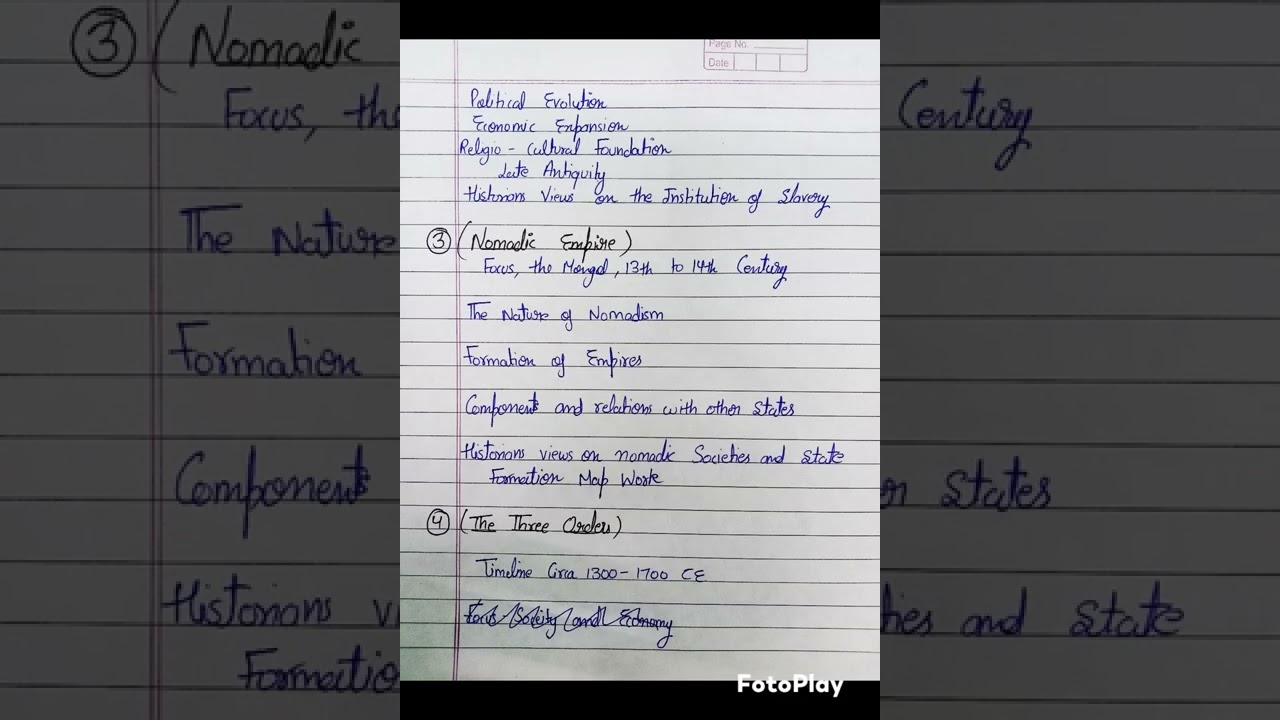 Page No.
Date
Political Evolution
Economic Expansion
Religio - Cultural Foundation
Late Antiquity
Historians Views on the Institution of Slavery
③ (Nomadic Empire)
Focus, the Mongol, 13th to 14th Century
The Nature of Nomadism
Formation of Empires
Components and relations with other States
Historians views on nomadic Societies and State
Formation Map Work
④ (The Three Orders)
Timeline Circa 1300-1700 CE
Focus Society and Economy
FotoPlay
③ (Nomadic
Focus, the
Century
The Nature
Formation
Components
States
Historians
and State
Formatio